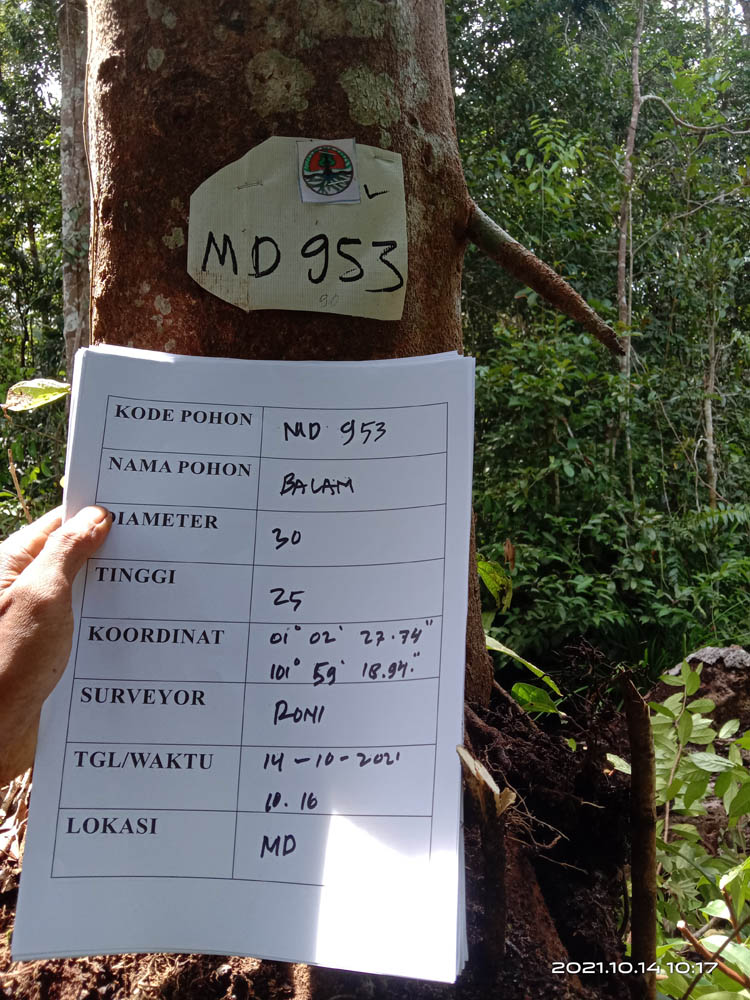 MD 953
90
KODE POHON MD 953
NAMA POHON BALAM
DIAMETER 30
TINGGI 25
KOORDINAT 01° 02' 27.74"
101° 59' 18.94"
SURVEYOR RONI
TGL/WAKTU 14-10-2021
10.16
LOKASI MD
2021.10.14 10:17